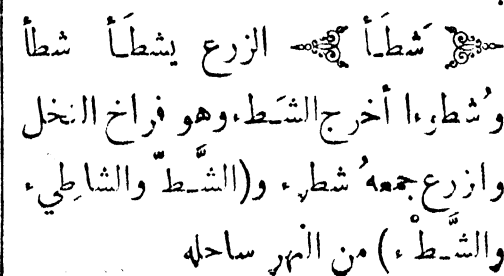 ﴿ شَطَأ ﴾ الزرع يشطَأ شطأ
وشُطوءا أخرج الشَط، وهو فراخ النخل
وازرع جمعه شُطوء و(الشَّطّ والشاطِيء
والشَّطْء) من النهر ساحله